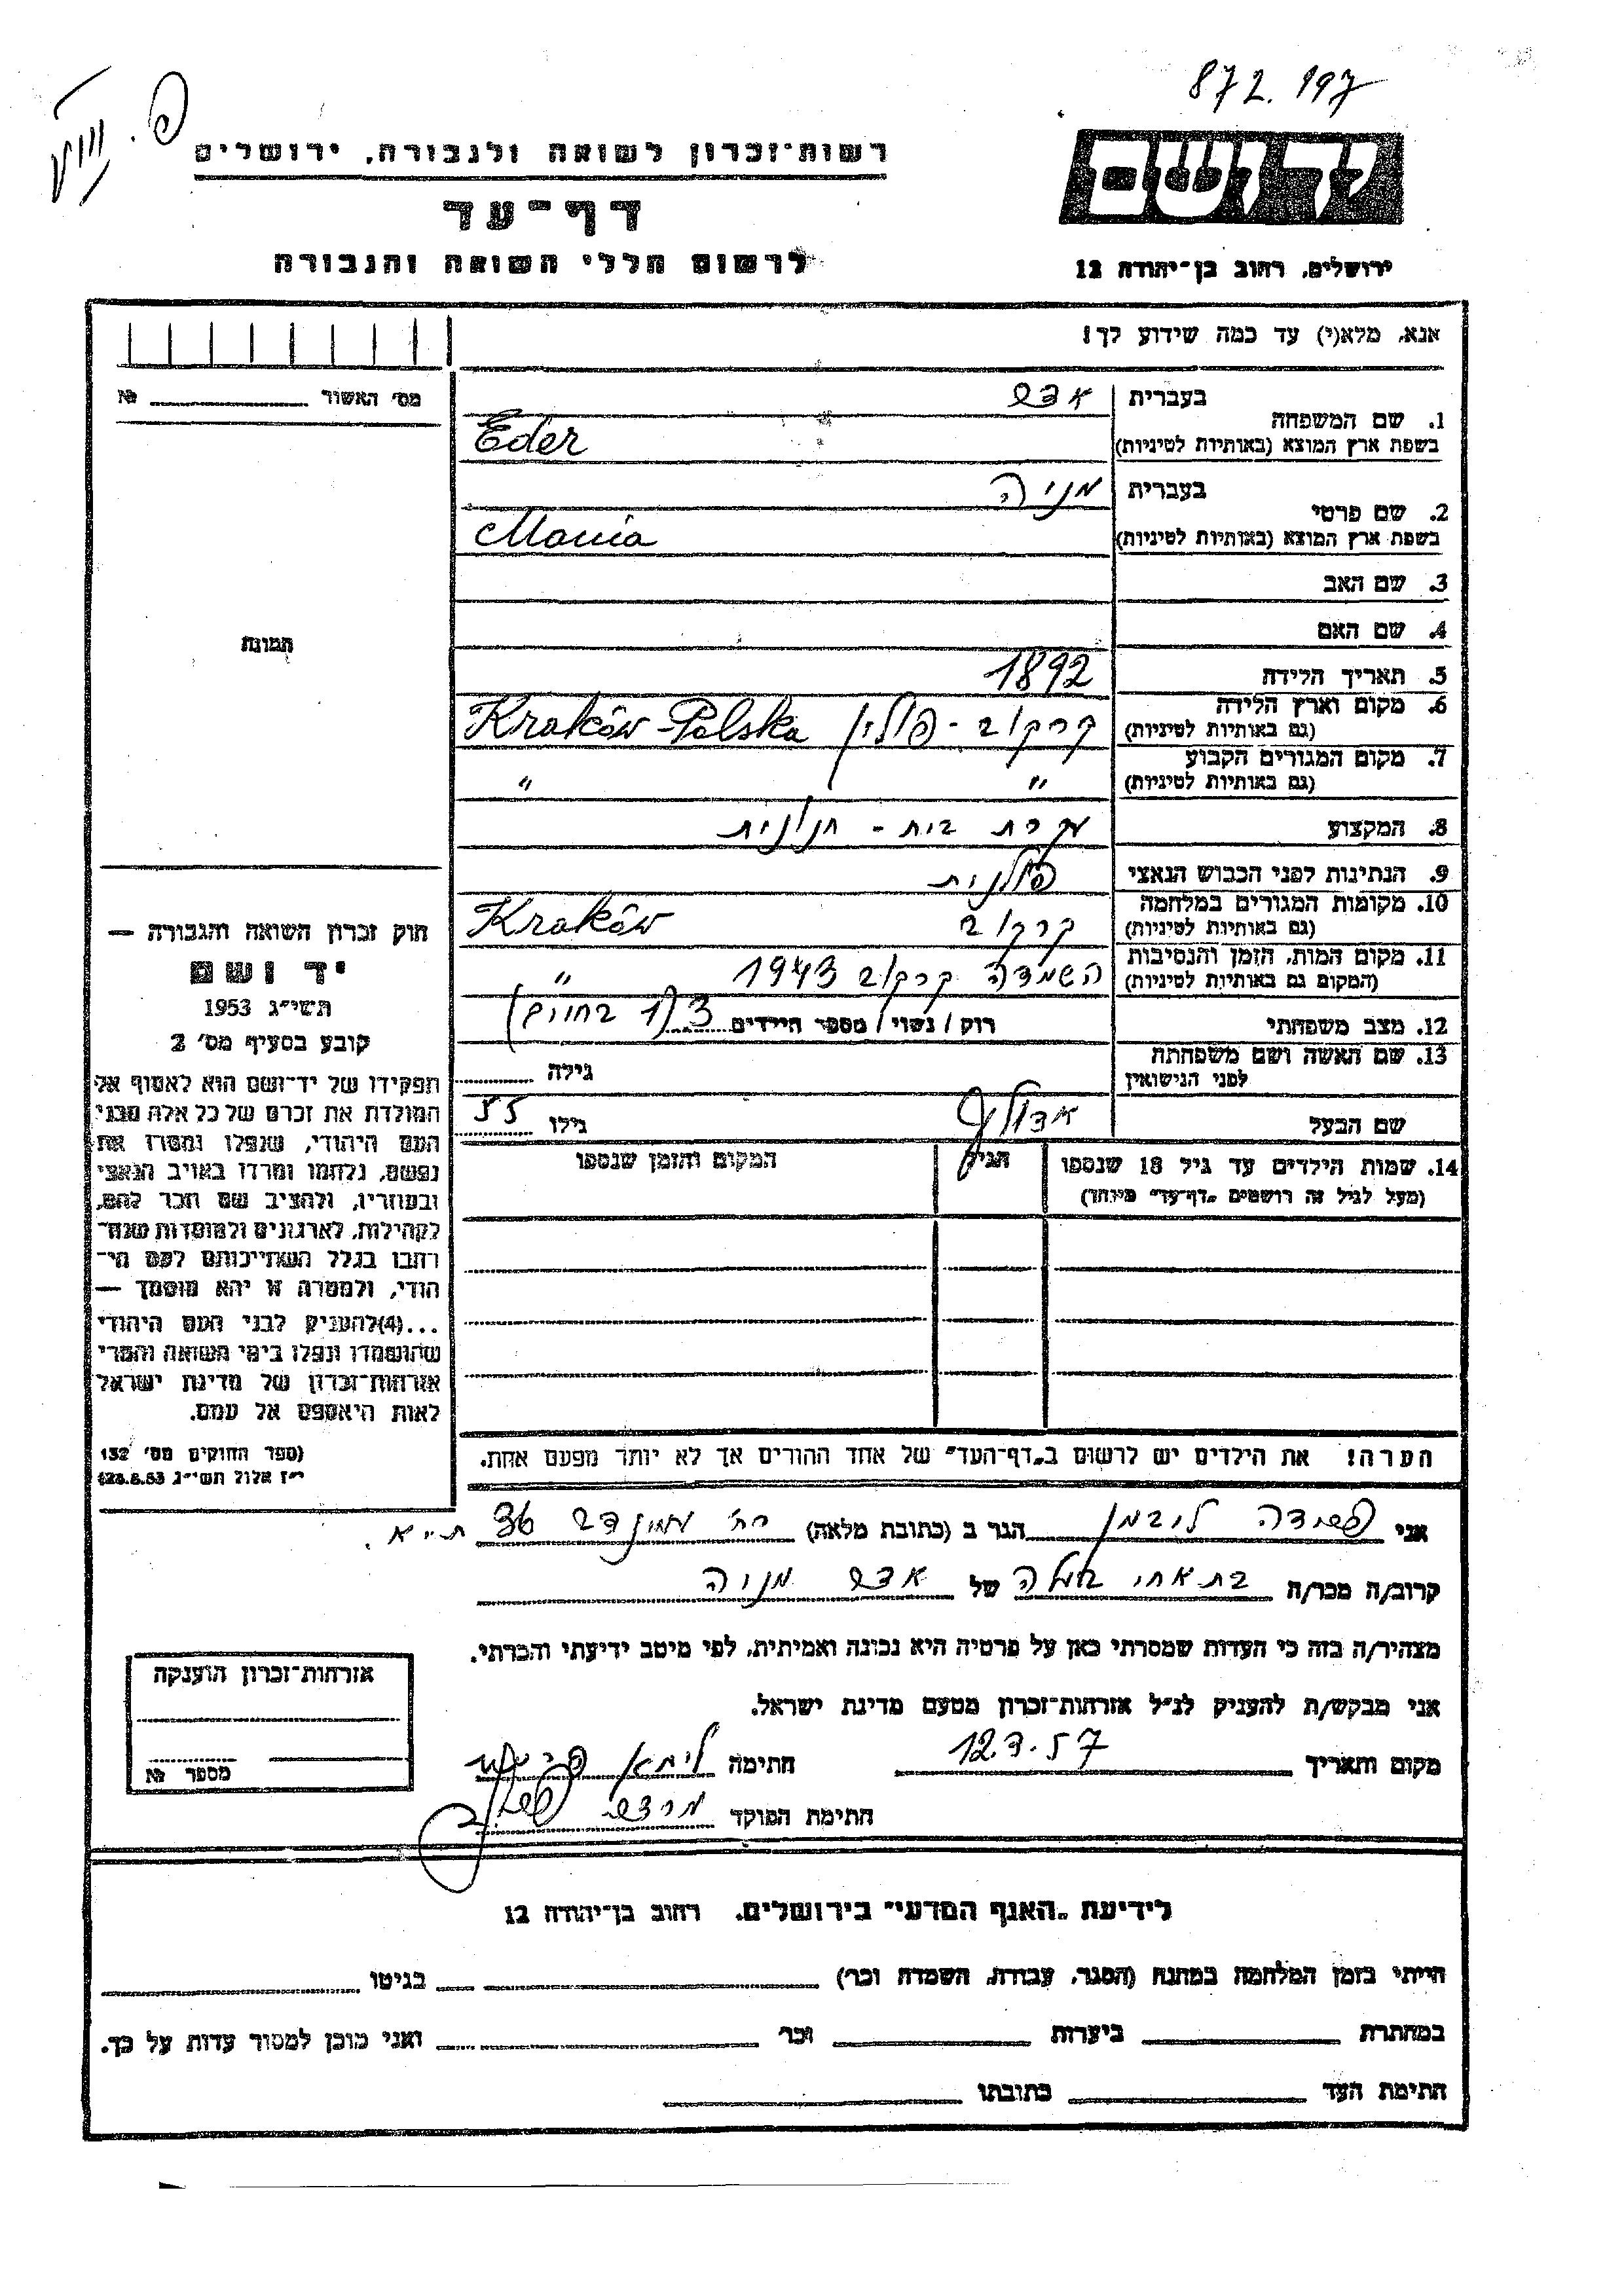 872.197
רשות־זכרון לשואה ולגבורה, ירושלים
דף־עד
לרשום חללי השואה והגבורה
ירושלים, רחוב בן־יהודה 12
אנא, מלא(י) עד כמה שידוע לך!
מס׳ האשור № 
1. שם המשפחה
בעברית אדר
בשפת ארץ המוצא (באותיות לטיניות) Eder
2. שם פרטי
בעברית מניה
בשפת ארץ המוצא (באותיות לטיניות) Mania
3. שם האב
4. שם האם
תמונה
5. תאריך הלידה 1892
6. מקום וארץ הלידה קרקוב - פולין Kraków-Polska
(גם באותיות לטיניות)
7. מקום המגורים הקבוע " "
(גם באותיות לטיניות)
8. המקצוע עקרת בית - חנונית
9. הנתינות לפני הכבוש הנאצי פולנית
10. מקומות המגורים במלחמה קרקוב Kraków
(גם באותיות לטיניות)
11. מקום המות, הזמן והנסיבות השמדה קרקוב 1943 "
(המקום גם באותיות לטיניות)
12. מצב משפחתי רוק / נשוי / מספר הילדים 3 (1 בחיים)
13. שם האשה ושם משפחתה
לפני הנישואין גילה
שם הבעל אדולף גילו 55
14. שמות הילדים עד גיל 18 שנספו
(מעל לגיל זה רושמים „דף־עד״ מיוחד)
הגיל
המקום והזמן שנספו
חוק זכרון השואה והגבורה —
יד ושם
תשי״ג 1953
קובע בסעיף מס׳ 2
תפקידו של יד־ושם הוא לאסוף אל
המולדת את זכרם של כל אלה מבני
העם היהודי, שנפלו ומסרו את
נפשם, נלחמו ומרדו באויב הנאצי
ובעוזריו, ולהציב שם וזכר להם,
לקהילות, לארגונים ולמוסדות שנח־
רבו בגלל השתייכותם לעם הי־
הודי, ולמטרה זו יהא מוסמך —
...(4)להעניק לבני העם היהודי
שהושמדו ונפלו בימי השואה והמרי
אזרחות־זכרון של מדינת ישראל
לאות היאספם אל עמם.
(ספר החוקים מס׳ 132
י״ז אלול תשי״ג 28.8.53)
הערה! את הילדים יש לרשום ב„דף־העד״ של אחד ההורים אך לא יותר מפעם אחת.
אני פרידה ליבמן הגר ב (כתובת מלאה) רח׳ 36 ת״א.
קרוב/ה מכר/ה בת אחי בעלה של אדר מניה
מצהיר/ה בזה כי העדות שמסרתי כאן על פרטיה היא נכונה ואמיתית, לפי מיטב ידיעתי והכרתי.
אני מבקש/ת להעניק לנ״ל אזרחות־זכרון מטעם מדינת ישראל.
מקום ותאריך 12.3.57 חתימה
חתימת הפוקד
אזרחות־זכרון הוענקה
מספר №
לידיעת „האגף המדעי״ בירושלים, רחוב בן־יהודה 12
הייתי בזמן המלחמה במחנה (הסגר, עבודה, השמדה וכו׳) בגיטו
במחתרת ביערות וכו׳ ואני מוכן למסור עדות על כך.
חתימת העד כתובתו